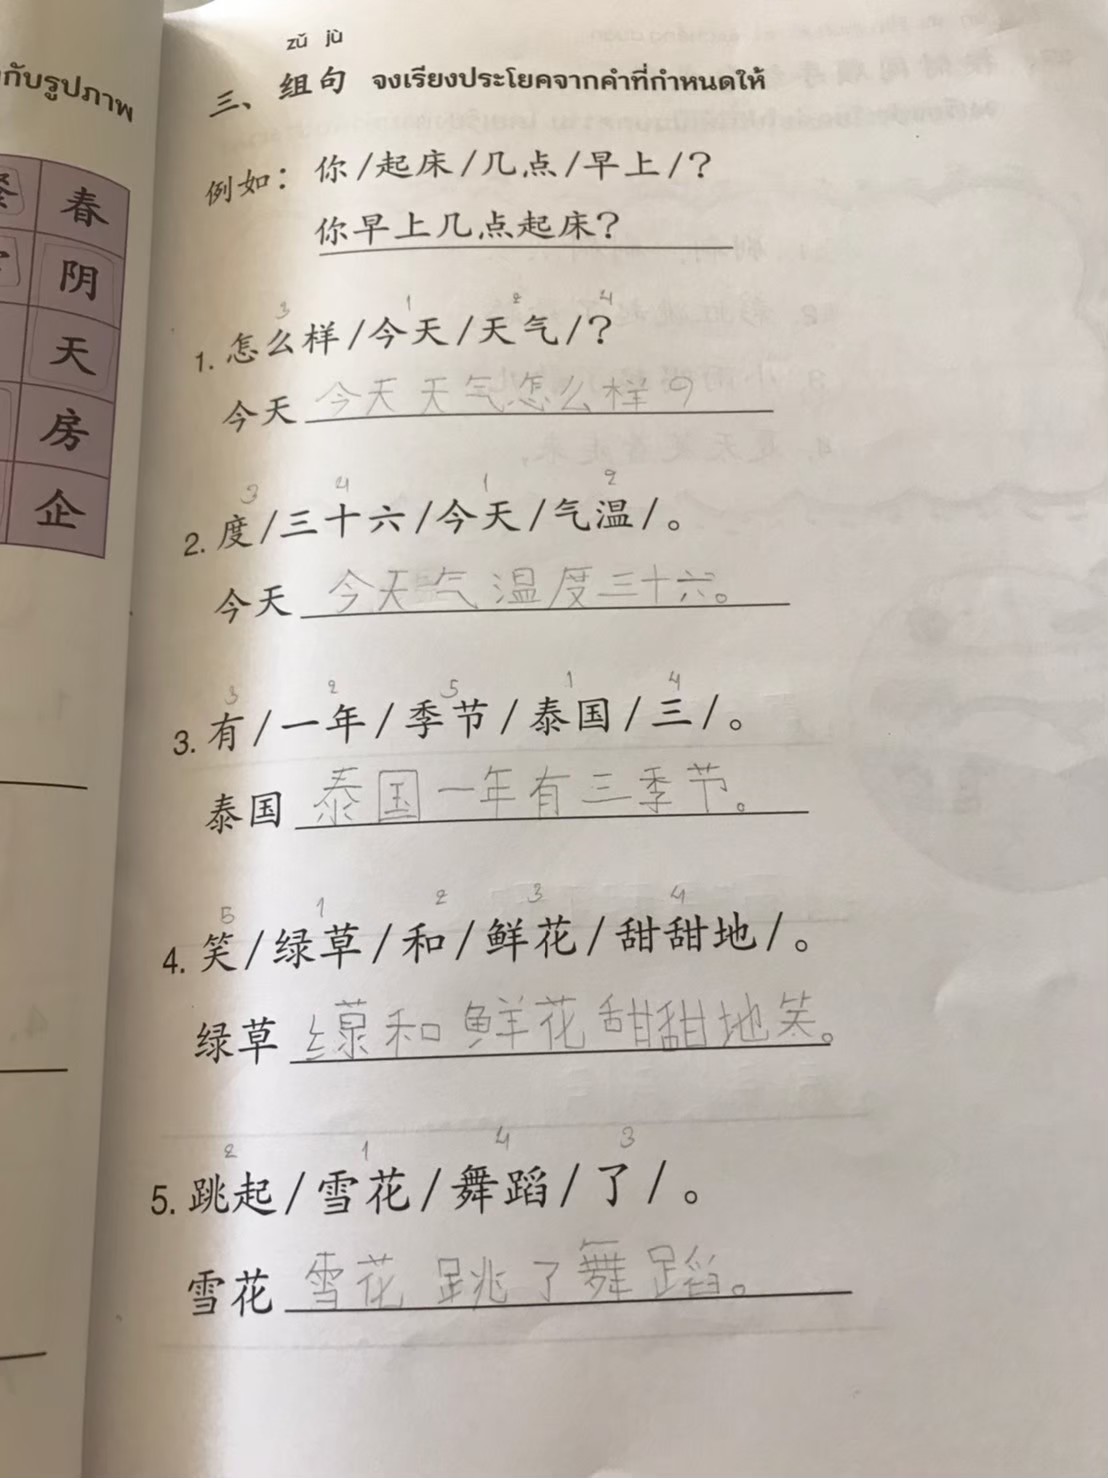 กับรูปภาพ
春
阴
天
房
企
zǔ jù
三、组句 จงเรียงประโยคจากคำที่กำหนดให้
例如：你/起床/几点/早上/?
你早上几点起床?
3 1 2 4
1. 怎么样/今天/天气/?
今天 今天天气怎么样?
3 4 1 2
2. 度/三十六/今天/气温/。
今天 今天气温度三十六。
3 2 5 1 4
3. 有/一年/季节/泰国/三/。
泰国 泰国一年有三季节。
5 1 2 3 4
4. 笑/绿草/和/鲜花/甜甜地/。
绿草 和鲜花甜甜地笑。
2 1 4 3
5. 跳起/雪花/舞蹈/了/。
雪花 雪花跳了舞蹈。